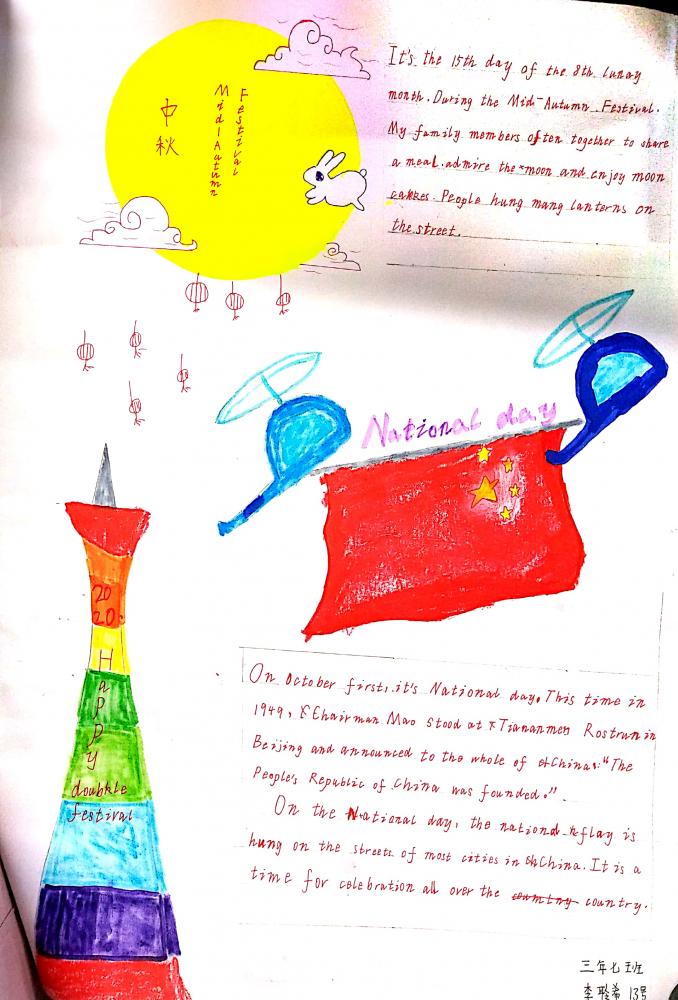 中秋
Mid Autumn
Festival
It's the 15th day of the 8th lunay
month. During the Mid-Autumn Festival.
My family members often together to share
a meal. admire the moon and enjoy moon
cakkes. People hung mang lanterns on
the street.
National day
20
20.
Happy
doubkle
festival
On October first, it's National day. This time in
1949, Chairman Mao stood at Tiananmen Rostrun in
Beijing and announced to the whole of China: "The
People's Republic of China was founded."
On the National day, the nationd flay is
hung on the streets of most cities in China. It is a
time for celebration all over the country.
三年七班
李 希 13号